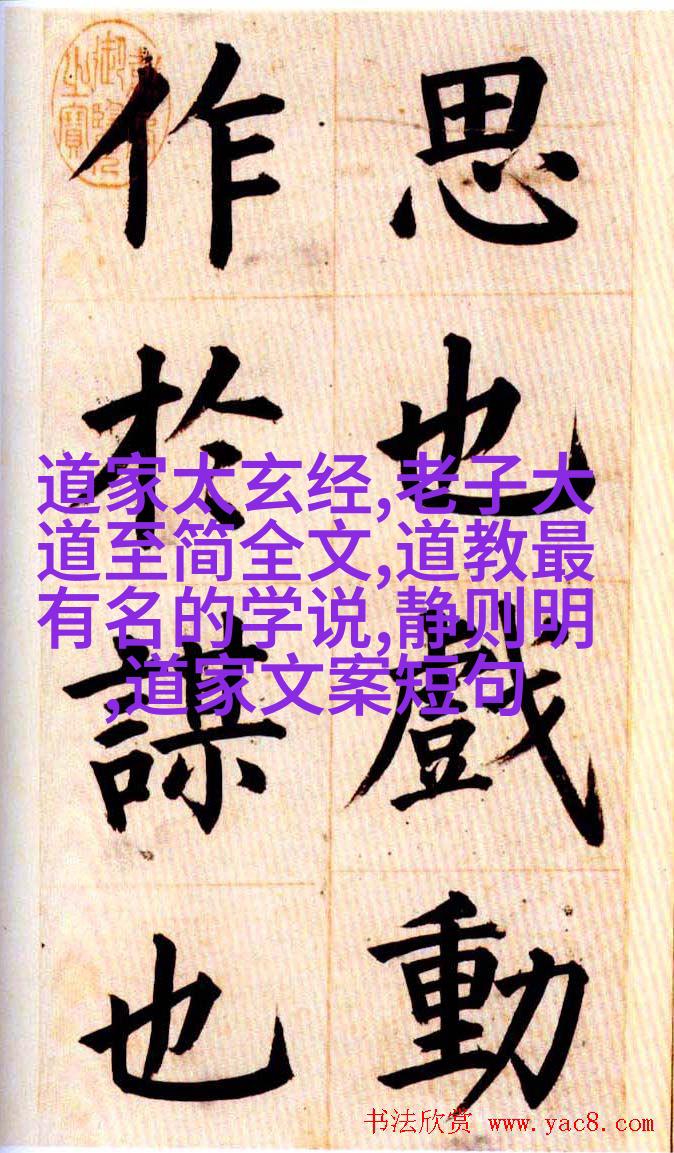 思也戲動
作於謀也
道家太玄经,老子大
道至简全文,道教最
有名的学说,静则明
,道家文案短句
书法欣赏 www.yac8.com